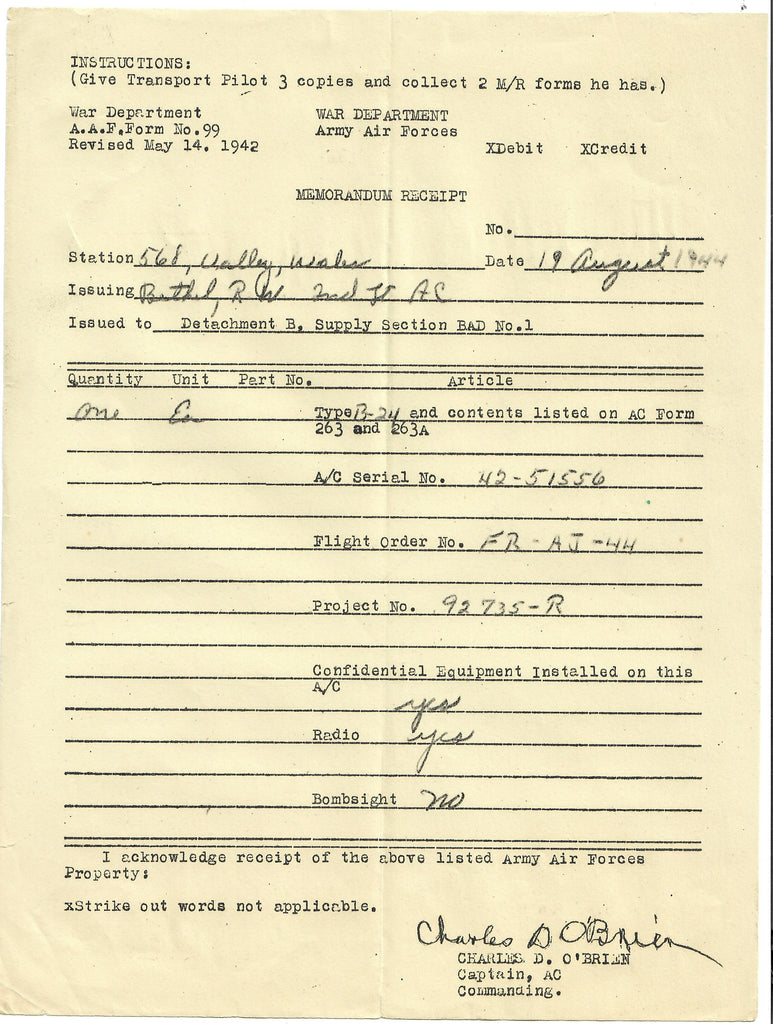 INSTRUCTIONS:
(Give Transport Pilot 3 copies and collect 2 M/R forms he has.)
War Department WAR DEPARTMENT
A.A.F.Form No.99 Army Air Forces
Revised May 14. 1942 XDebit XCredit
MEMORANDUM RECEIPT
No.
Station 568, Valley, Wales Date 19 August 1944
Issuing Bethel, R W 2nd Lt AC
Issued to Detachment B, Supply Section BAD No.1
Quantity Unit Part No. Article
One Ea Type B-24 and contents listed on AC Form
263 and 263A
A/C Serial No. 42-51556
Flight Order No. FR-AJ-44
Project No. 92735-R
Confidential Equipment Installed on this
A/C
yes
Radio yes
Bombsight no
I acknowledge receipt of the above listed Army Air Forces
Property:
xStrike out words not applicable.
Charles D O'Brien
CHARLES D. O'BRIEN
Captain, AC
Commanding.